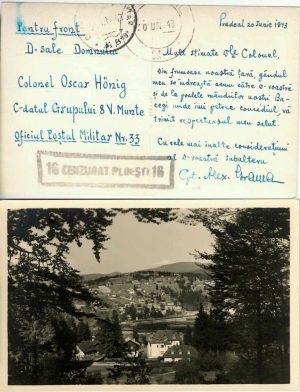 Pentru front
D-sale Domnului
Colonel Oscar Hönig
C-datul Grupului 8 V. Munte
Oficiul Poștal Militar Nr. 33
16 CENZURAT PLOEȘTI 16
Predeal 20 Iunie 1943
Mult stimate Dle Colonel,
Din frumoasa noastră țară, gândul
meu se îndreaptă acum către D-voastră
și de la poalele mândrilor noștri Bu-
cegi unde îmi petrec concediul, vă
trimit respectuosul meu salut.
Cu cele mai înalte considerațiuni
al D-voastră subaltern
Cpt. Alex.